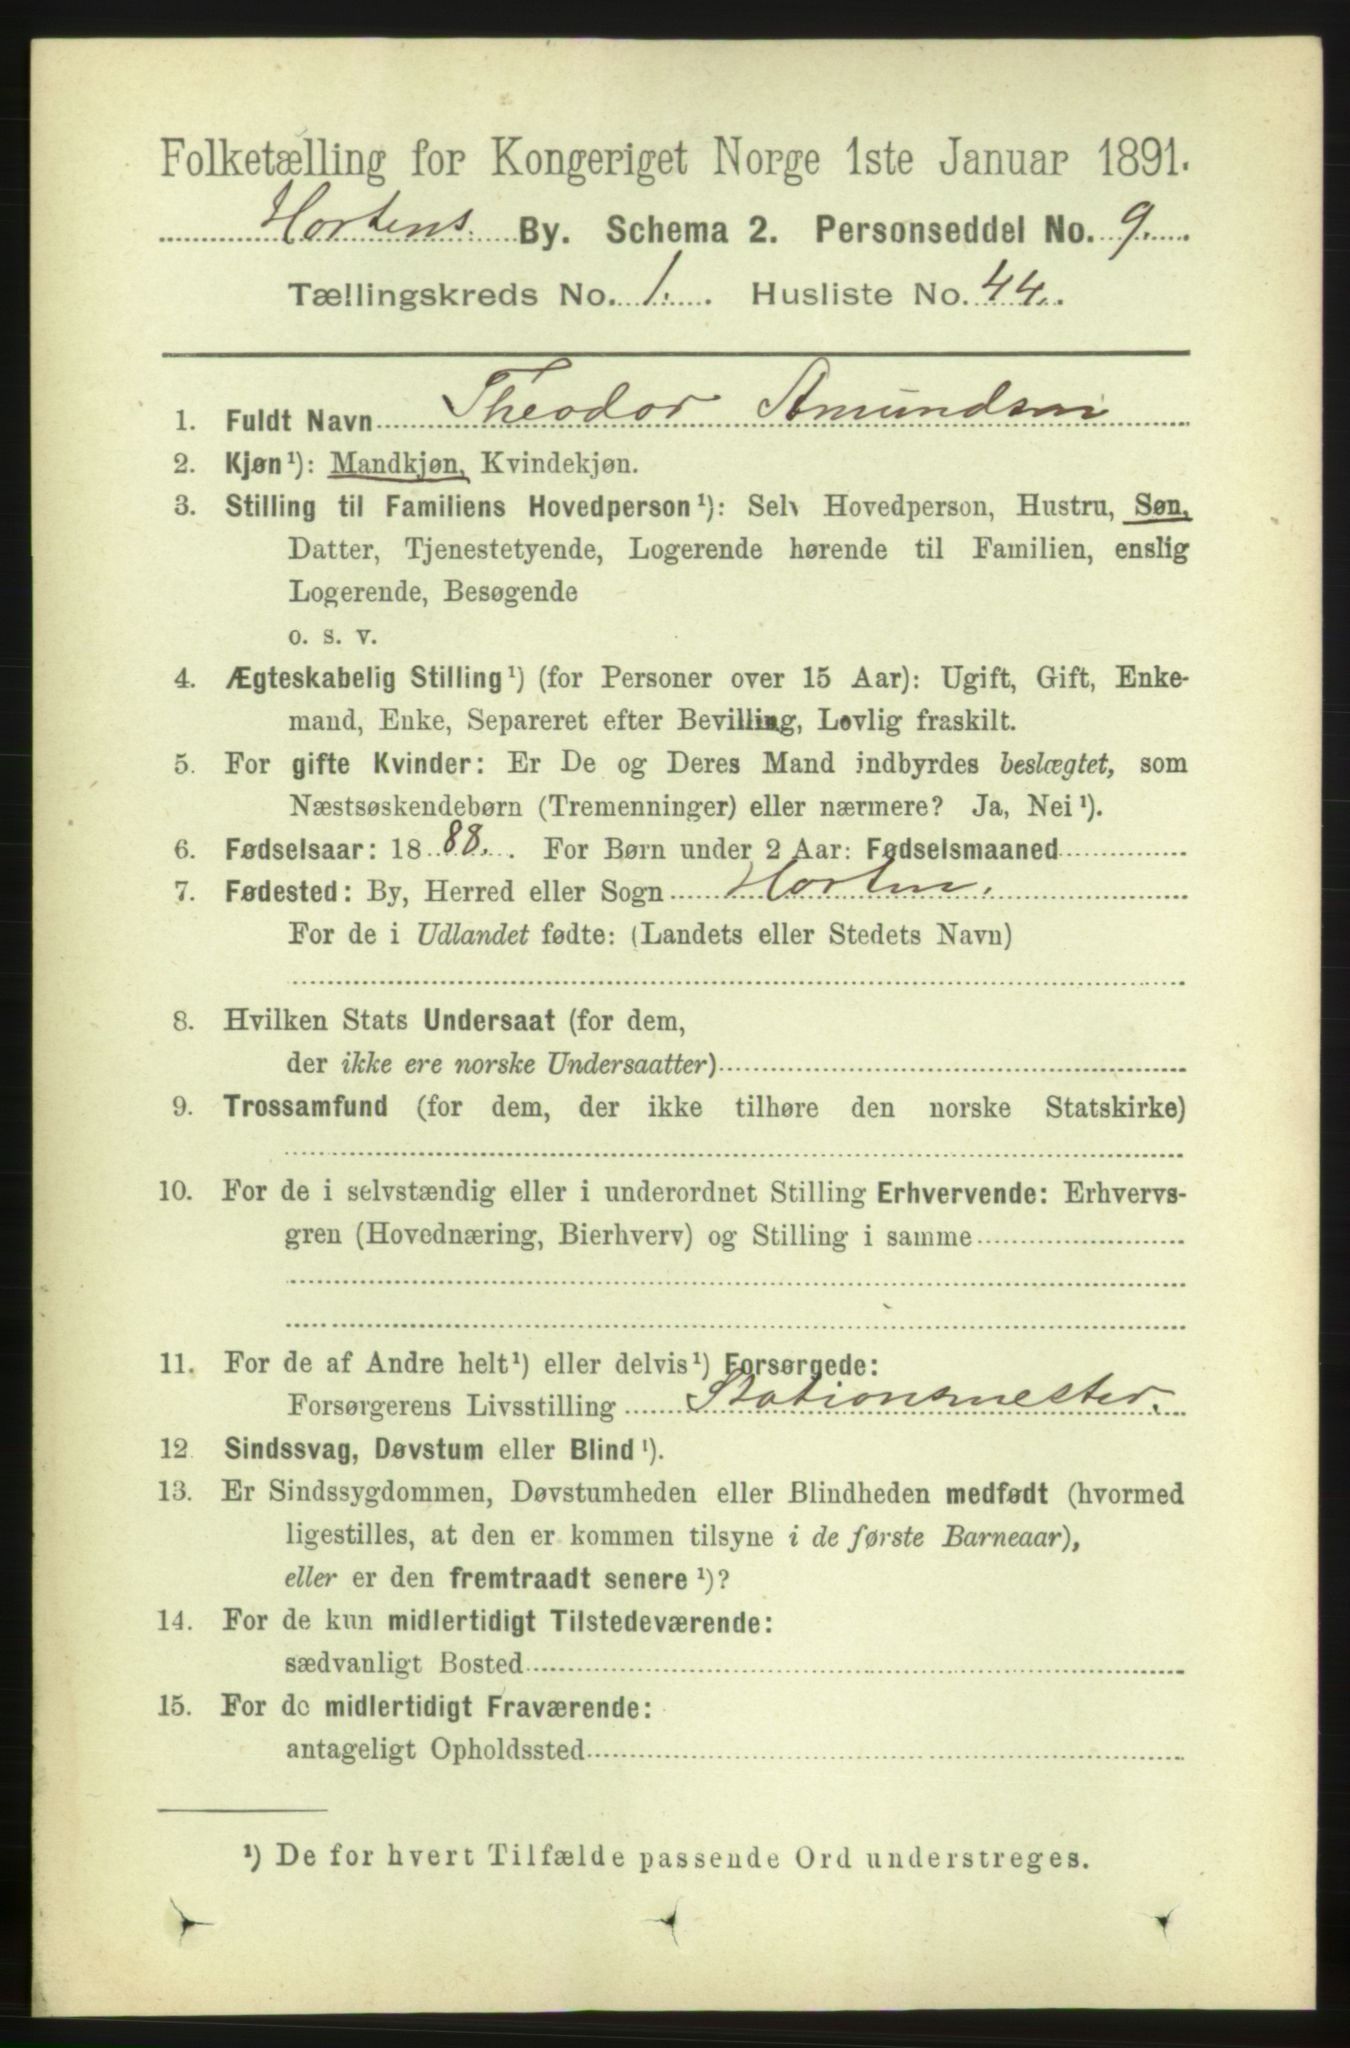 Folketælling for Kongeriget Norge 1ste Januar 1891.
Hortens By. Schema 2. Personseddel No. 9.
Tællingskreds No. 1. Husliste No. 44.
1. Fuldt Navn Theodor Amundsen
2. Kjøn¹): Mandkjøn, Kvindekjøn.
3. Stilling til Familiens Hovedperson¹): Selv Hovedperson, Hustru, Søn,
Datter, Tjenestetyende, Logerende hørende til Familien, enslig
Logerende, Besøgende
o. s. v.
4. Ægteskabelig Stilling¹) (for Personer over 15 Aar): Ugift, Gift, Enke-
mand, Enke, Separeret efter Bevilling, Lovlig fraskilt.
5. For gifte Kvinder: Er De og Deres Mand indbyrdes beslægtet, som
Næstsøskendebørn (Tremenninger) eller nærmere? Ja, Nei¹).
6. Fødselsaar: 1888. For Børn under 2 Aar: Fødselsmaaned
7. Fødested: By, Herred eller Sogn Horten.
For de i Udlandet fødte: (Landets eller Stedets Navn)
8. Hvilken Stats Undersaat (for dem,
der ikke ere norske Undersaatter)
9. Trossamfund (for dem, der ikke tilhøre den norske Statskirke)
10. For de i selvstændig eller i underordnet Stilling Erhvervende: Erhvervs-
gren (Hovednæring, Bierhverv) og Stilling i samme
11. For de af Andre helt¹) eller delvis¹) Forsørgede:
Forsørgerens Livsstilling Stationsmester.
12. Sindssvag, Døvstum eller Blind¹).
13. Er Sindssygdommen, Døvstumheden eller Blindheden medfødt (hvormed
ligestilles, at den er kommen tilsyne i de første Barneaar),
eller er den fremtraadt senere¹)?
14. For de kun midlertidigt Tilstedeværende:
sædvanligt Bosted
15. For de midlertidigt Fraværende:
antageligt Opholdssted
¹) De for hvert Tilfælde passende Ord understreges.